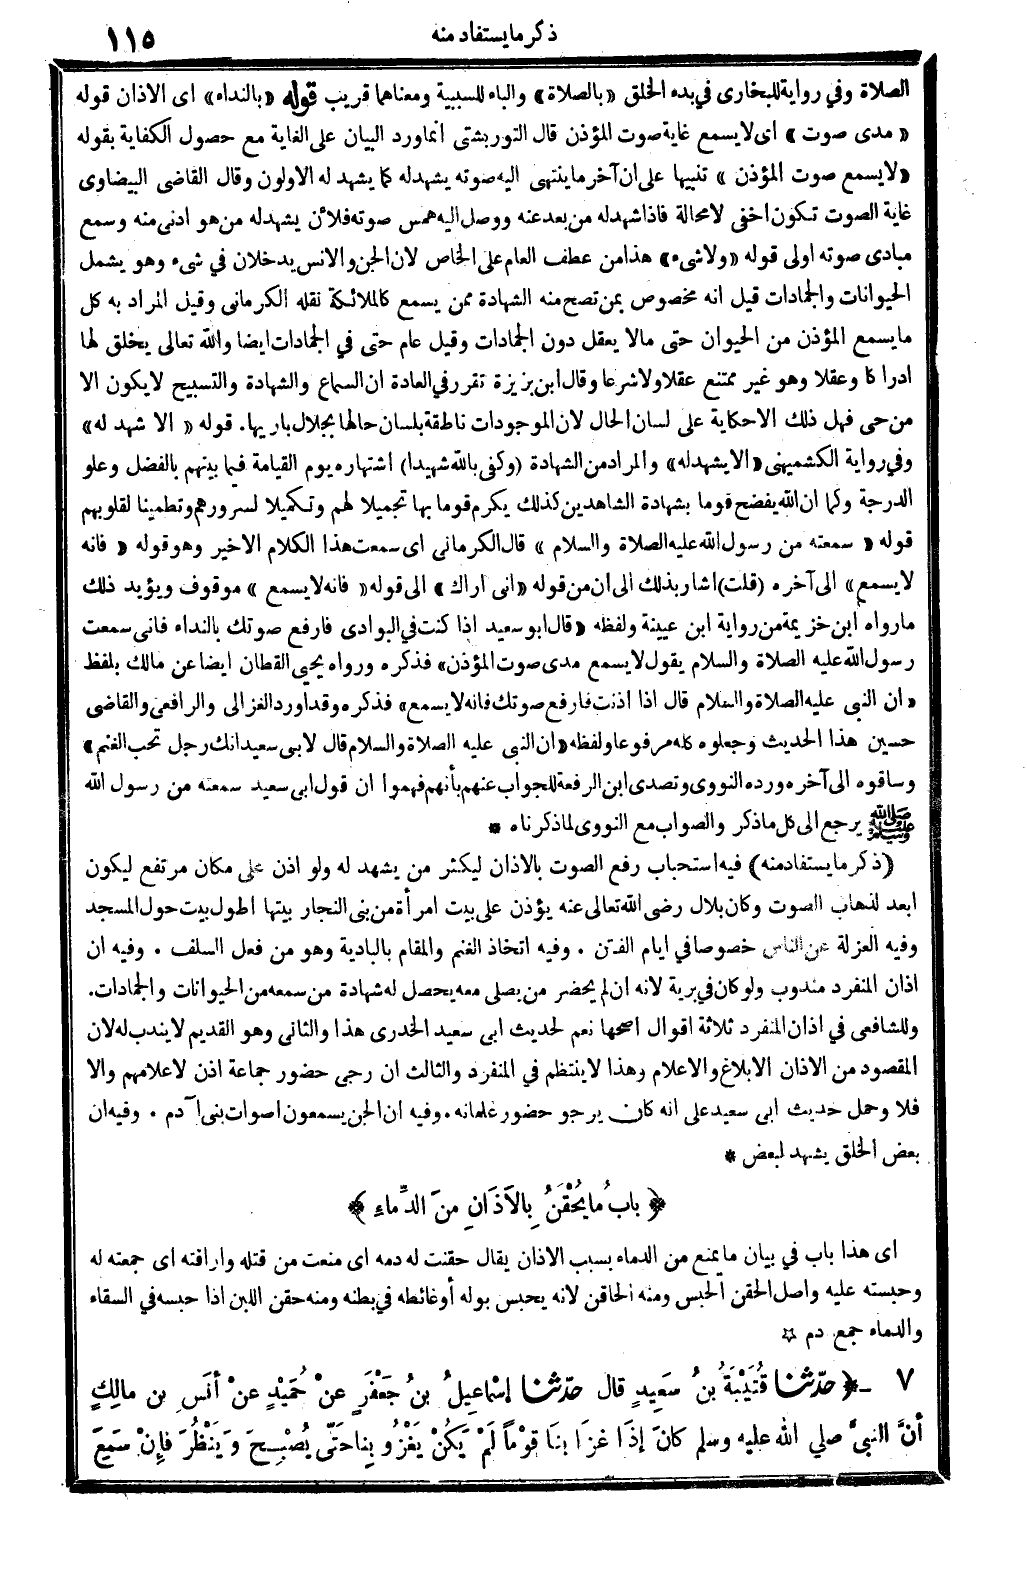 ذكر مايستفاد منه
١١٥
الصلاة وفي رواية للبخارى في بدء الخلق «بالصلاة» والباء للسببية ومعناهما قريب قوله «بالنداء» اى الاذان قوله
« مدى صوت » اى لا يسمع غاية صوت المؤذن قال التوربشتى انما ورد البيان على الغاية مع حصول الكفاية بقوله
«لا يسمع صوت المؤذن » تنبيها على ان آخر ما ينتهى اليه صوته يشهد له كما يشهد له الاولون وقال القاضى البيضاوى
غاية الصوت تكون اخفى لا محالة فاذا شهد له من بعد عنه ووصل اليه همس صوته فلائن يشهد له من هو ادنى منه وسمع
مبادى صوته اولى قوله «ولا شىء» هذا من عطف العام على الخاص لان الجن والانس يدخلان في شىء وهو يشمل
الحيوانات والجمادات قيل انه مخصوص بمن تصح منه الشهادة ممن يسمع كالملائكة نقله الكرمانى وقيل المراد به كل
ما يسمع المؤذن من الحيوان حتى مالا يعقل دون الجمادات وقيل عام حتى في الجمادات ايضا والله تعالى يخلق لها
ادراكا وعقلا وهو غير ممتنع عقلا ولا شرعا وقال ابن بزيزة تقرر في العادة ان السماع والشهادة والتسبيح لا يكون الا
من حى فهل ذلك الا حكاية على لسان الحال لان الموجودات ناطقة بلسان حالها بجلال باريها. قوله « الا شهد له»
وفي رواية الكشميهنى «الا يشهد له» والمراد من الشهادة (وكفى بالله شهيدا) اشتهاره يوم القيامة فيما بينهم بالفضل وعلو
الدرجة وكما ان الله يفضح قوما بشهادة الشاهدين كذلك يكرم قوما بها تجميلا لهم وتكميلا لسرورهم وتطمينا لقلوبهم
قوله « سمعته من رسول الله عليه الصلاة والسلام » قال الكرمانى اى سمعت هذا الكلام الاخير وهو قوله « فانه
لا يسمع» الى آخره (قلت) اشار بذلك الى ان من قوله «انى اراك» الى قوله « فانه لا يسمع » موقوف ويؤيد ذلك
مارواه ابن خزيمة من رواية ابن عيينة ولفظه «قال ابو سعيد اذا كنت في البوادى فارفع صوتك بالنداء فانى سمعت
رسول الله عليه الصلاة والسلام يقول لا يسمع مدى صوت المؤذن» فذكره ورواه يحيى القطان ايضا عن مالك بلفظ
«ان النبى عليه الصلاة والسلام قال اذا اذنت فارفع صوتك فانه لا يسمع» فذكره وقد اورد الغزالى والرافعى والقاضى
حسين هذا الحديث وجعلوه كله مرفوعا ولفظه «ان النبى عليه الصلاة والسلام قال لابى سعيد انك رجل تحب الغنم»
وساقوه الى آخره ورده النووى وتصدى ابن الرفعة للجواب عنهم بأنهم فهموا ان قول ابى سعيد سمعته من رسول الله
ﷺ يرجع الى كل ما ذكر والصواب مع النووى لما ذكرناه *
(ذكر ما يستفاد منه) فيه استحباب رفع الصوت بالاذان ليكثر من يشهد له ولو اذن على مكان مرتفع ليكون
ابعد لذهاب الصوت وكان بلال رضى الله تعالى عنه يؤذن على بيت امرأة من بنى النجار بيتها اطول بيت حول المسجد
وفيه العزلة عن الناس خصوصا في ايام الفتن . وفيه اتخاذ الغنم والمقام بالبادية وهو من فعل السلف . وفيه ان
اذان المنفرد مندوب ولو كان في برية لانه ان لم يحضر من يصلى معه يحصل له شهادة من سمعه من الحيوانات والجمادات.
وللشافعى في اذان المنفرد ثلاثة اقوال اصحها نعم لحديث ابى سعيد الخدرى هذا والثانى وهو القديم لا يندب له لان
المقصود من الاذان الابلاغ والاعلام وهذا لا ينتظم في المنفرد والثالث ان رجى حضور جماعة اذن لاعلامهم والا
فلا وحمل حديث ابى سعيد على انه كان يرجو حضور غلمانه . وفيه ان الجن يسمعون اصوات بنى آدم . وفيه ان
بعض الخلق يشهد لبعض *
﴿ بابُ ما يُحْقَنُ بِالأَذَانِ مِنَ الدِّماءِ ﴾
اى هذا باب في بيان ما يمنع من الدماء بسبب الاذان يقال حقنت له دمه اى منعت من قتله واراقته اى جمعته له
وحبسته عليه واصل الحقن الحبس ومنه الحاقن لانه يحبس بوله أو غائطه في بطنه ومنه حقن اللبن اذا حبسه في السقاء
والدماء جمع دم *
٧ - ﴿ حدّثنا قُتَيْبَةُ بنُ سَعِيدٍ قال حدّثنا إسْماعِيلُ بنُ جَعْفَرٍ عنْ حُمَيْدٍ عنْ أنَسِ بنِ مالِكٍ
أنَّ النبيَّ صلى الله عليه وسلم كانَ إذَا غَزَا بِنَا قَوْماً لَمْ يَكُنْ يَغْزُو بِنا حَتَّى يُصْبِحَ وَيَنْظُرَ فإِنْ سَمِعَ